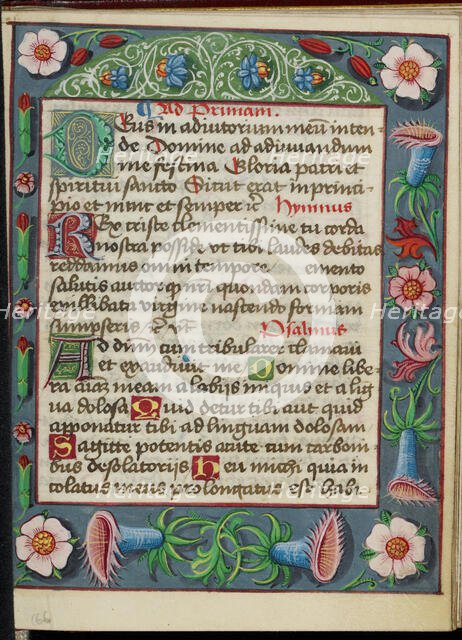 Ad Primam.
Deus in adiutorium meū inten-
de Domine ad adiuuandum
me festina Gloria patri et
spiritui sancto Sicut erat in princi-
pio et nunc et semper Hymnus
Rex criste clementissime tu corda
nostra posside vt tibi laudes debitas
reddamus omi tempore emento
salutis auctor quondam corporis
virgine nascendo formam
sumpseris Psalmus
Ad dnm cum tribularer clamaui
et exaudiuit me Domine libe-
ra aiaz meam a labijs iniquis et a lig
ua dolosa Quid detur tibi aut quid
apponatur tibi ad linguam dolosam
Sagitte potentis acute cum carboni-
bus desolatorijs Heu michi quia in-
colatus meus prolongatus est habi-
166
Heritage
Images